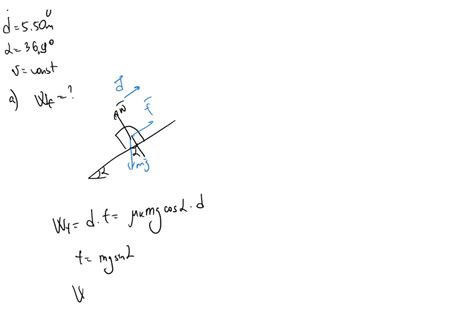 d = 5.50 m
α = 36,9°
v = const
a) W_f = ?
d
N
f
α
mg
α
W_f = d · f = μ_k mg cos α · d
f = mg sin α
W